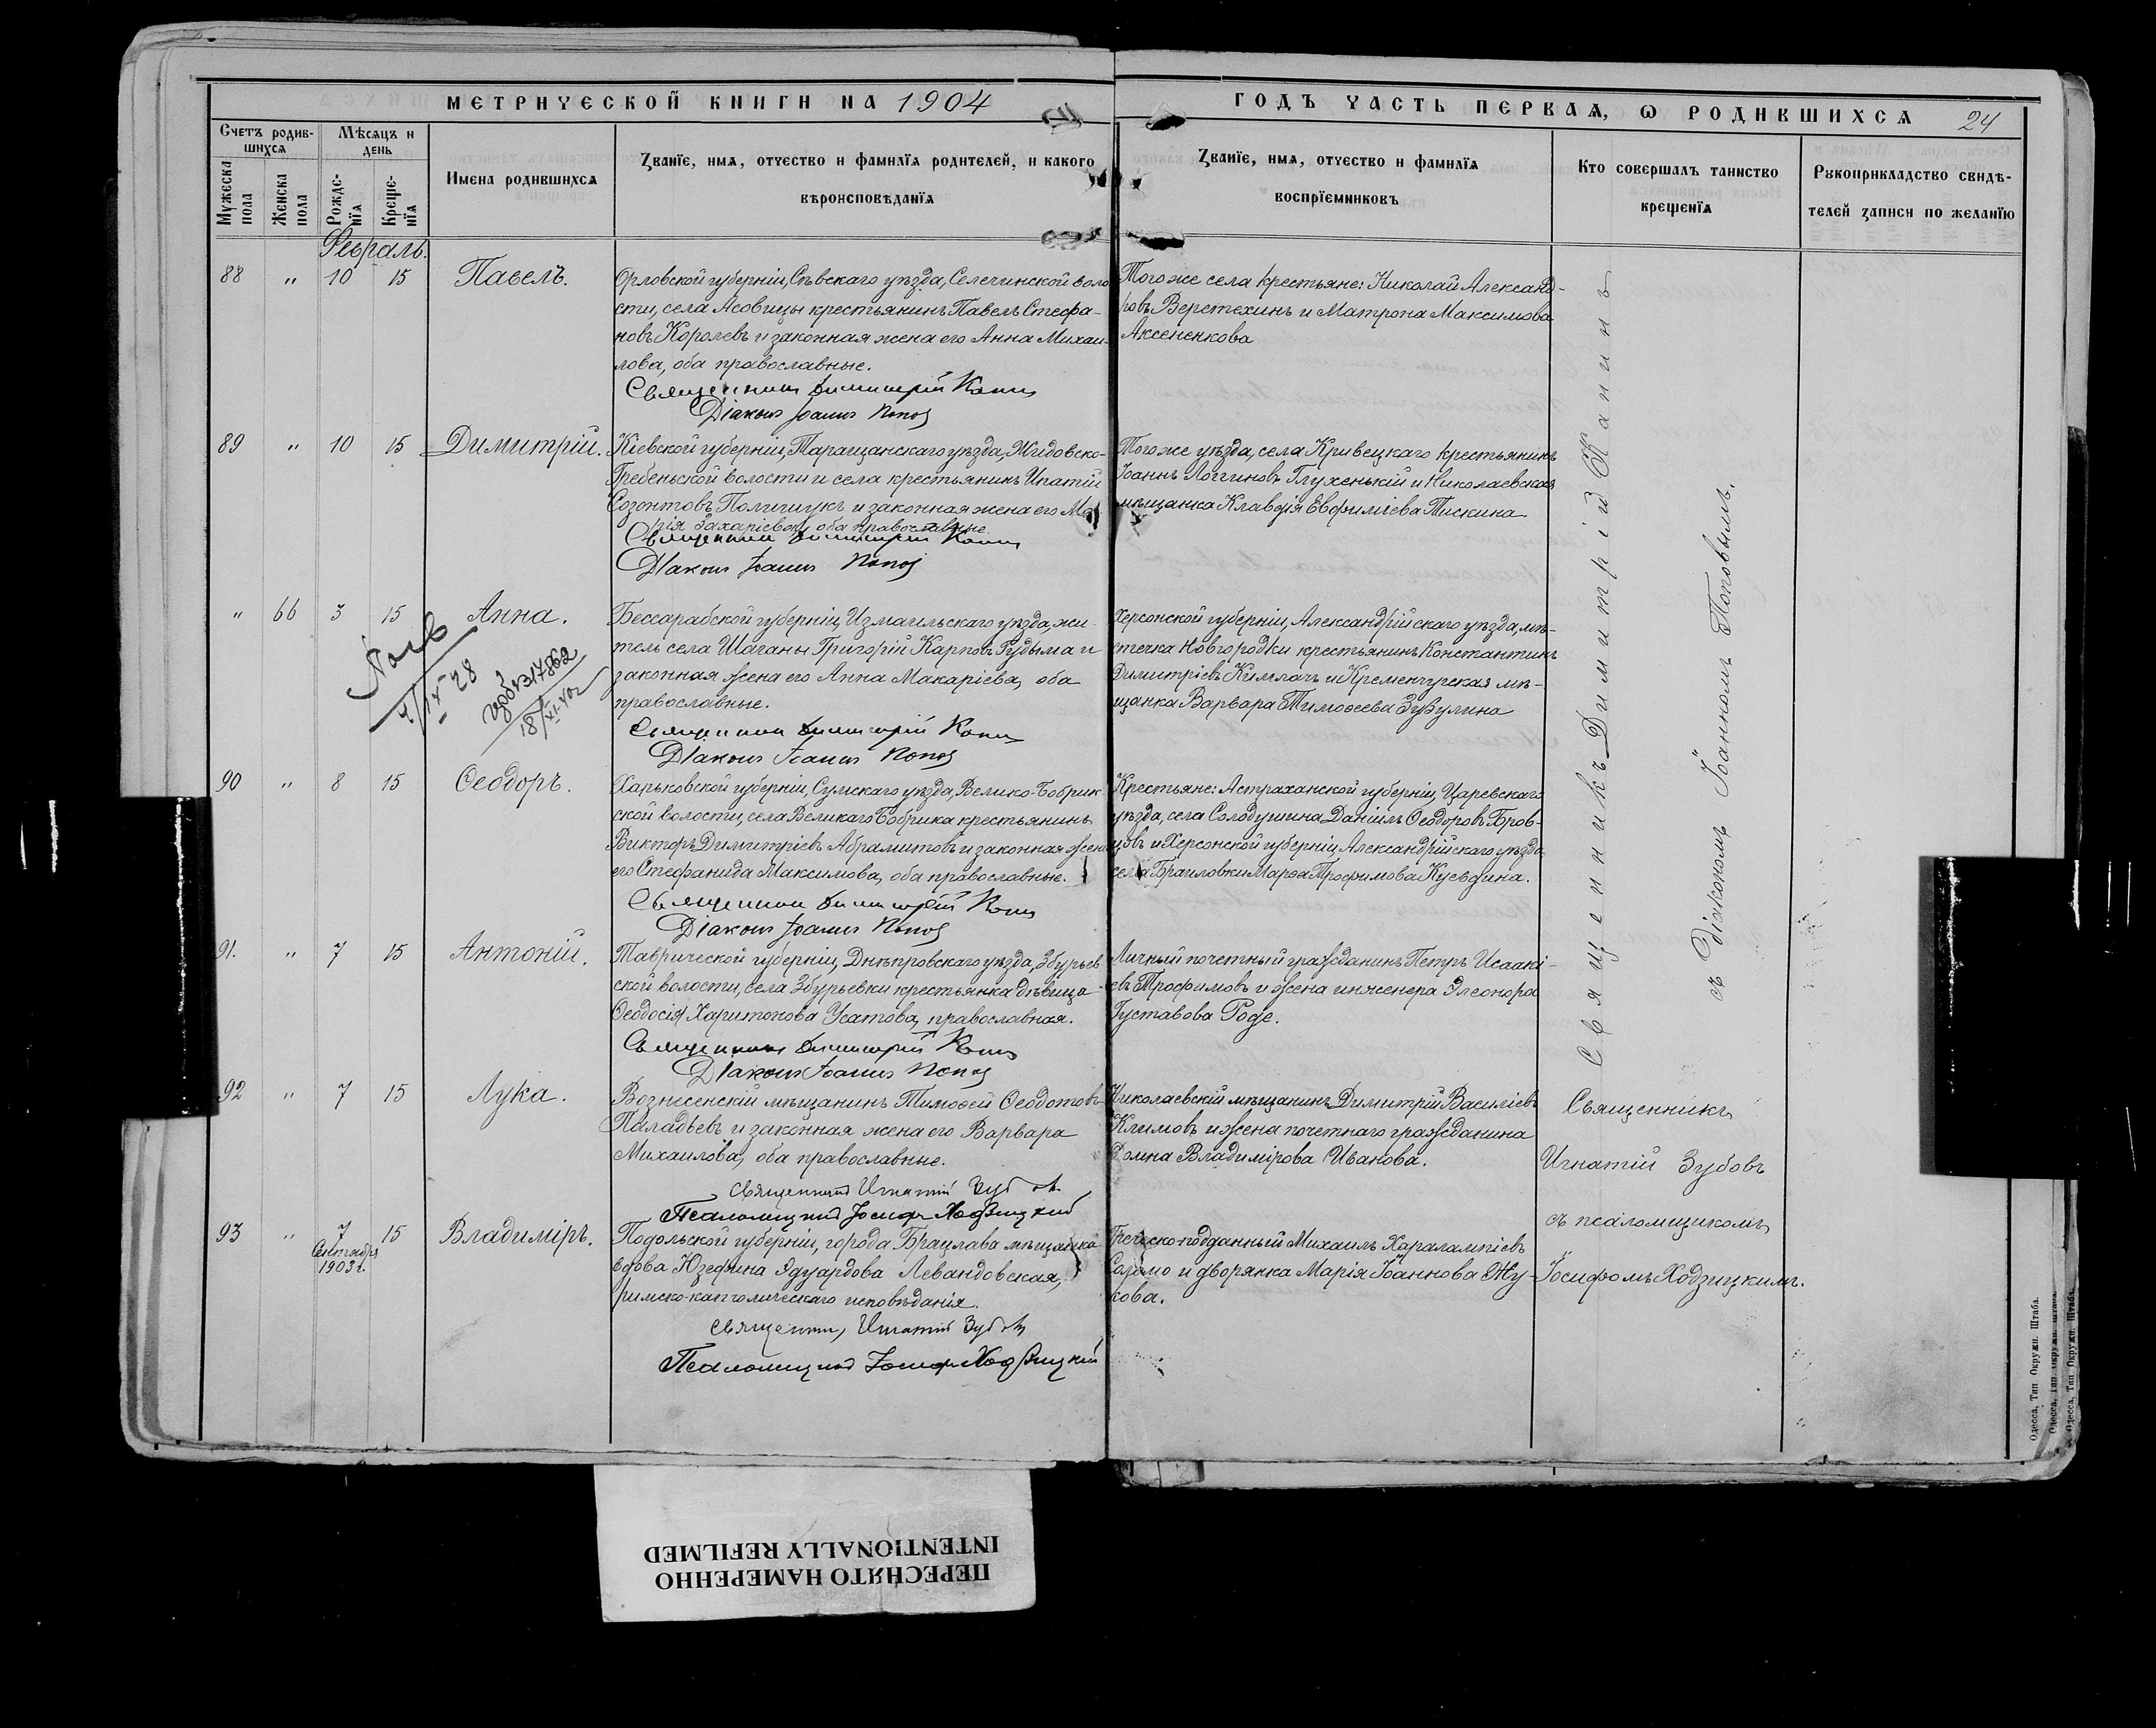 МЕТРИЧЕСКОЙ КНИГИ НА 1904
ГОДЪ ЧАСТЬ ПЕРВАЯ, Ѡ РОДИВШИХСЯ 24
Счетъ родив-
шихся
Мѣсяцъ и
день
Мужеска
пола
Женска
пола
Рожде-
нїя
Креще-
нїя
Имена родившихся
Званїе, имя, отчество и фамилїя родителей, и какого
вѣроисповѣданїя
Званїе, имя, отчество и фамилїя
воспрїемниковъ
Кто совершалъ таинство
крещенїя
Рукоприкладство свидѣ-
телей записи по желанїю
Февраль.
88 " 10 15 Павелъ.
Орловской губерніи, Сѣвскаго уѣзда, Селечинской воло
сти, села Асовицы крестьянинъ Павелъ Стефа-
новъ Королевъ и законная жена его Анна Михаи-
лова, оба православные.
Священникъ Димитрій
Діаконъ Іоаннъ Поповъ
Того же села крестьяне: Николай Александ-
ровъ Веретехинъ и Матрона Максимова
Аксененкова
89 " 10 15 Димитрій.
Кіевской губерніи, Таращанскаго уѣзда, Жидовско-
Гребеньской волости и села крестьянинъ Ипатій
Созонтовъ Полищукъ и законная жена его Ма
рія Захаріева, оба православные.
Священникъ Димитрій
Діаконъ Іоаннъ Поповъ
Того же уѣзда, села Кривецкаго крестьянинъ
Іоаннъ Логгиновъ Глухенькій и Николаевская
мѣщанка Клавдія Евфиміева Пискина
" 66 3 15 Анна.
1/IX 28
18/XI-40
Бессарабской губерніи, Измаильскаго уѣзда, жи-
тель села Шаганы Григорій Карповъ Гудыма и
законная жена его Анна Макаріева, оба
православные.
Священникъ Димитрій
Діаконъ Іоаннъ Поповъ
Херсонской губерніи, Александрійскаго уѣзда, мѣ-
стечка Новгородки крестьянинъ Константинъ
Димитріевъ и Кременчугская мѣ-
щанка Варвара Тимоѳеева Зубулина
90 " 8 15 Ѳеодоръ.
Харьковской губерніи, Сумскаго уѣзда, Велико-Бобрик
ской волости, села Великаго Бобрика крестьянинъ
Викторъ Димитріевъ Абрамитовъ и законная жена
его Стефанида Максимова, оба православные.
Священникъ Димитрій
Діаконъ Іоаннъ Поповъ
Крестьяне: Астраханской губерніи, Царевскаго
уѣзда, села Солодушина Даніилъ Ѳеодоровъ Бров-
цовъ и Херсонской губерніи, Александрійскаго уѣзда
села Браиловки Марѳа Трофимова
91. " 7 15 Антоній.
Таврической губерніи, Днѣпровскаго уѣзда, Збурьев
ской волости, села Збурьевки крестьянка дѣвица
Ѳеодосія Харитонова Усатова, православная.
Священникъ Димитрій
Діаконъ Іоаннъ Поповъ
Личный почетный гражданинъ Петръ Исаакі-
евъ Трофимовъ и жена инженера Элеонора
Густавова Роде.
Священникъ Димитрій Капинъ
съ діакономъ Іоанномъ Поповымъ.
92 " 7 15 Лука.
Вознесенскій мѣщанинъ Тимоѳей Ѳеодотовъ
Паладьевъ и законная жена его Варвара
Михаилова, оба православные.
Священникъ Игнатій Зубовъ
Псаломщикъ Іосифъ Ходзицкій
Николаевскій мѣщанинъ Димитрій Василіевъ
Климовъ и жена почетнаго гражданина
Домна Владимірова Иванова.
Священникъ
Игнатій Зубовъ
съ псаломщикомъ
Іосифомъ Ходзицкимъ.
93 " 7 15 Владиміръ.
Сентября
1903 г.
Подольской губерніи, города Брацлава мѣщанка
вдова Юзефина Эдуардова Левандовская,
римско-католическаго исповѣданія.
Священникъ Игнатій Зубовъ
Псаломщикъ Іосифъ Ходзицкій
Греческо-подданный Михаилъ Харалампіевъ
и дворянка Марія Іоаннова Жу-
кова.
Одесса, Тип Окружн. Штаба.
Одесса, Тип. Окружн. Штаба.
Одесса, Тип Окружн. Штаба.
ПЕРЕСНЯТО НАМЕРЕННО
INTENTIONALLY REFILMED